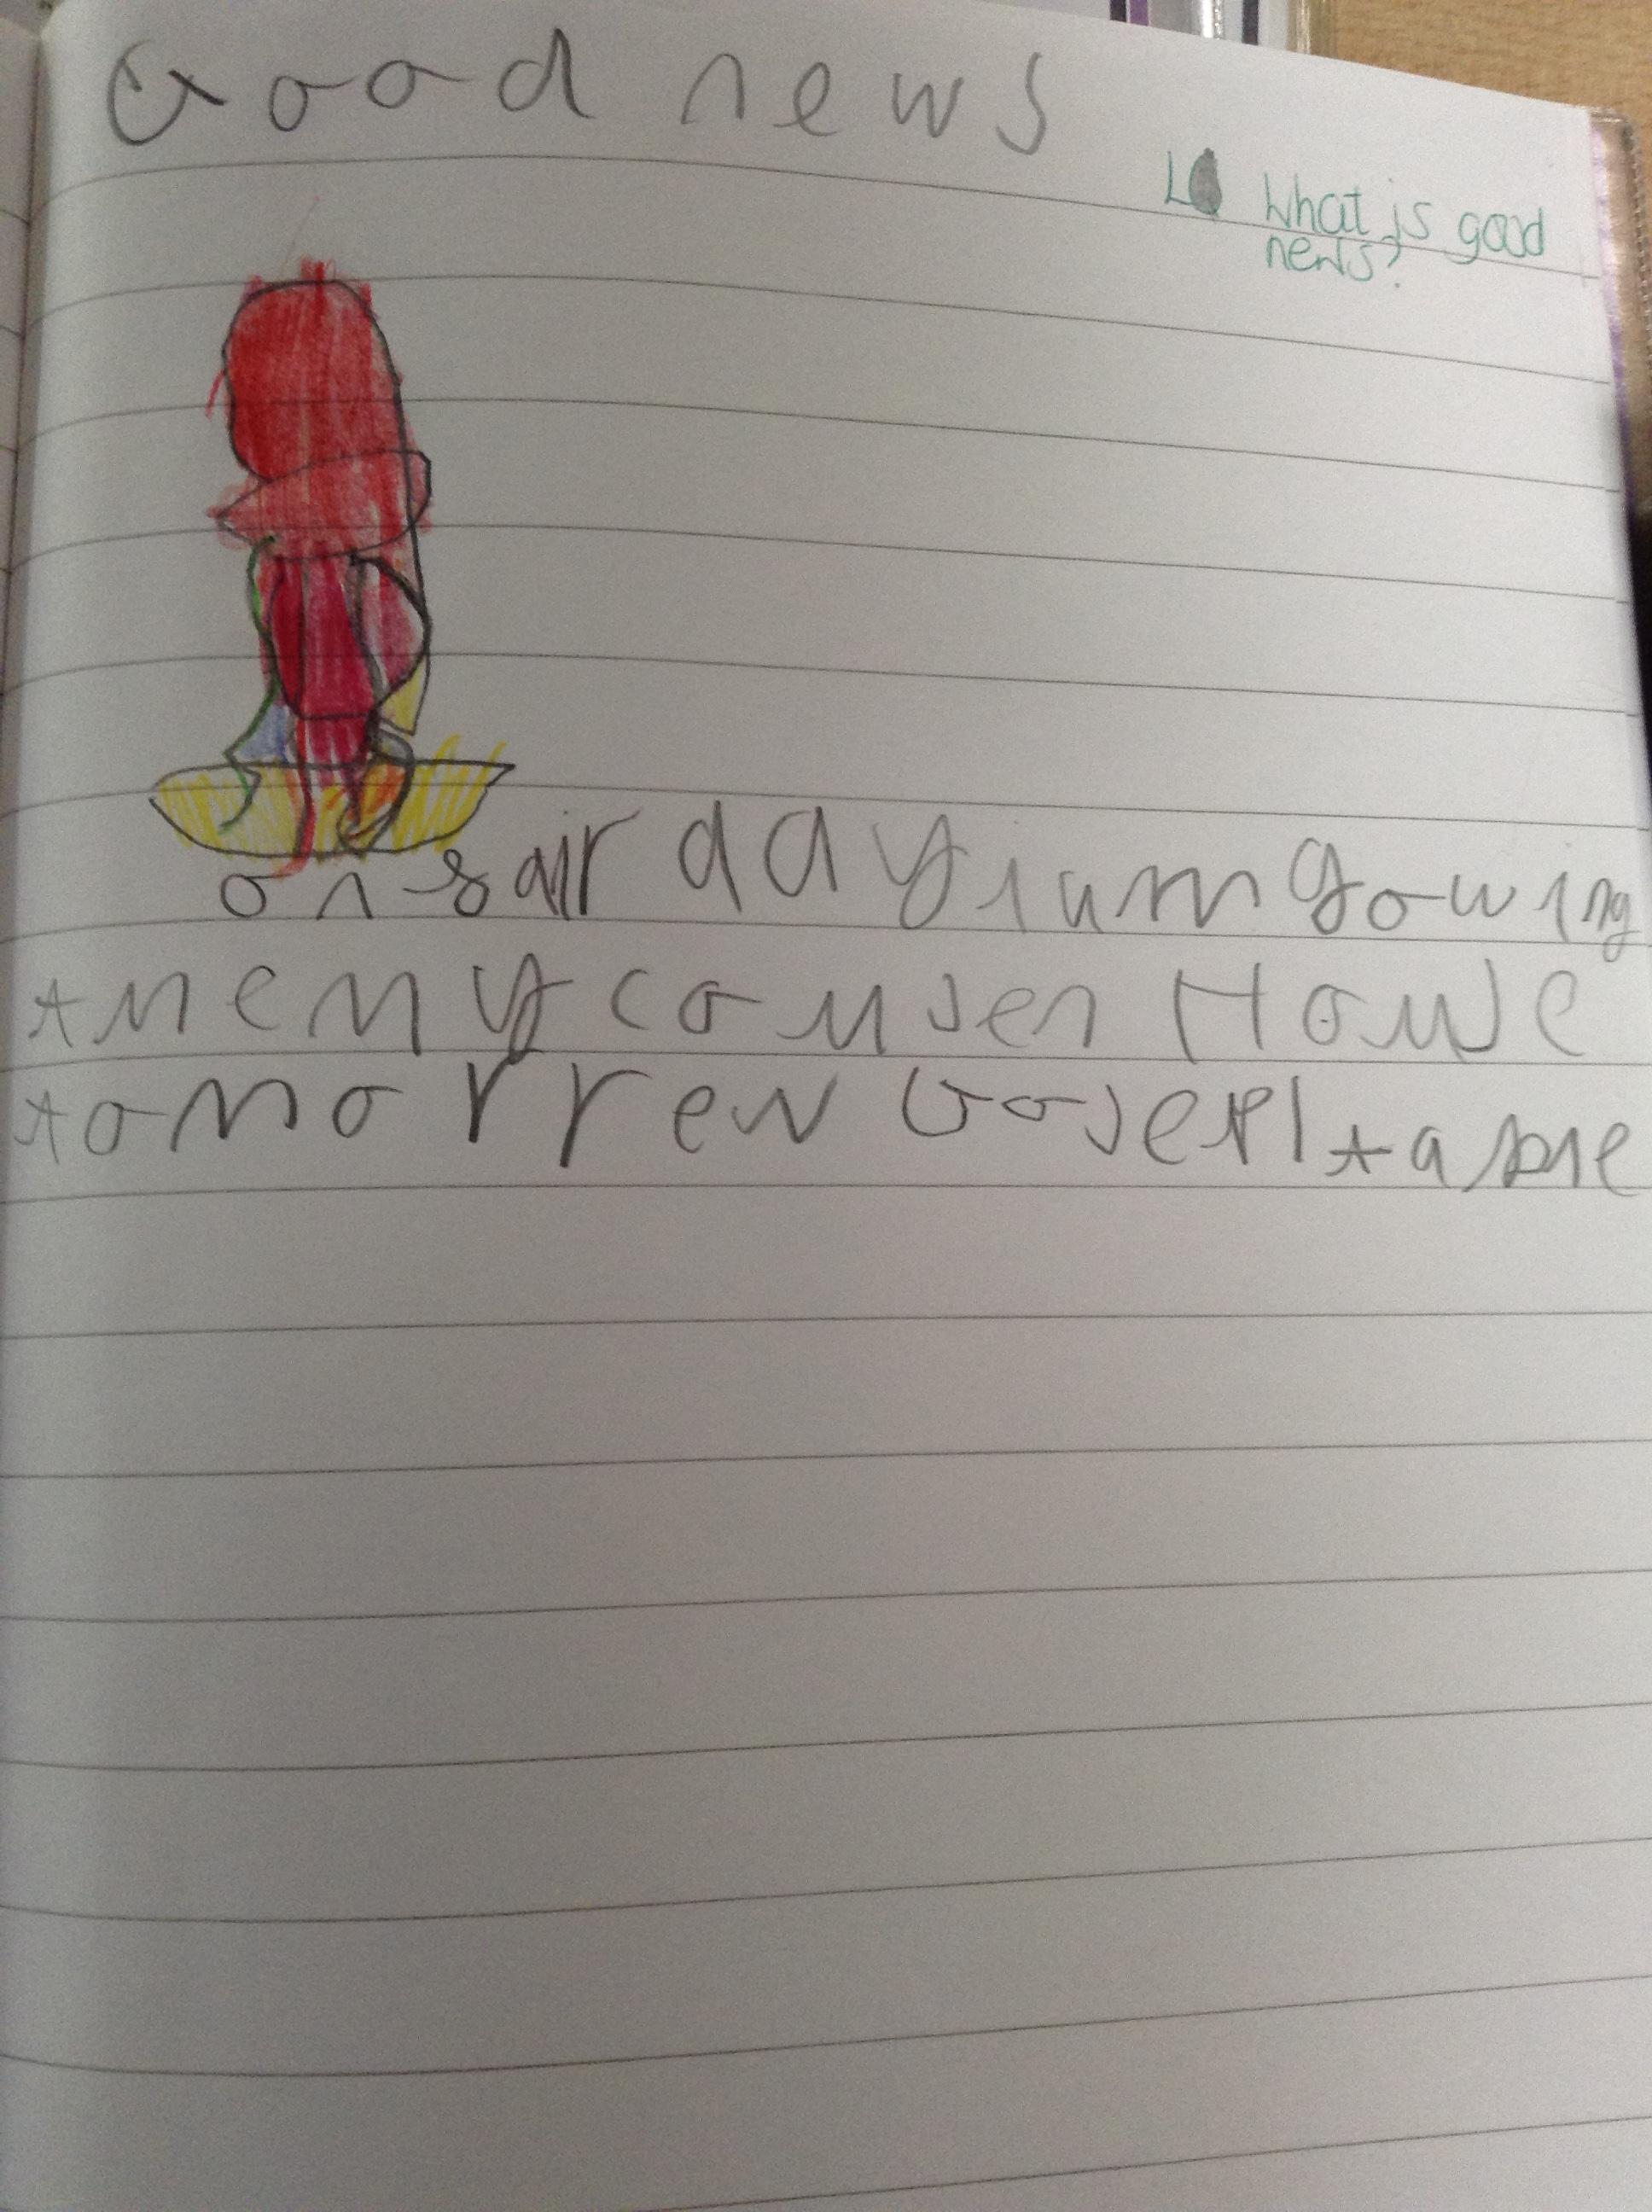 Good news
LO What is good
news?
on sair day i um gowing
t me my cousen House
tomorrew